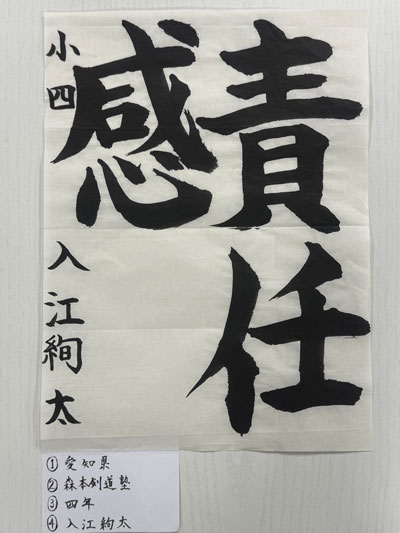 責任
感
小四 入江絢太
①愛知県
②森本剣道塾
③四年
④入江絢太